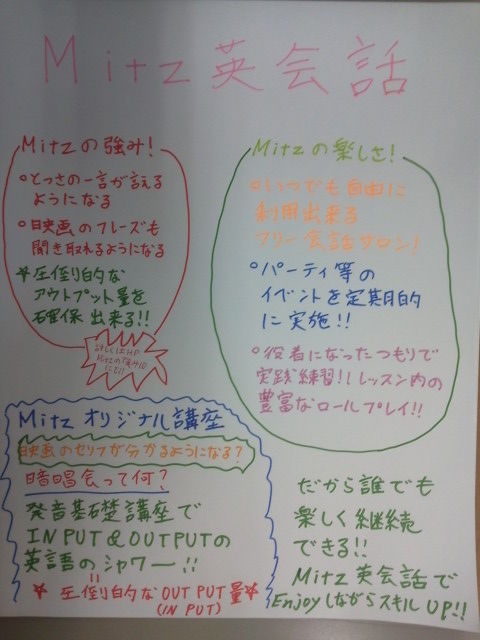 Mitz英会話
Mitzの強み!
○とっさの一言が言える
ようになる
○映画のフレーズも
聞き取れるようになる
☆圧倒的な
アウトプット量を
確保出来る!!
詳しくはHP
Mitzの強みJD
にも!!
Mitzの楽しさ!
○いつでも自由に
利用出来る
フリー会話サロン!
○パーティ等の
イベントを定期的
に実施!!
○役者になったつもりで
実践練習!!レッスン内の
豊富なロールプレイ!!
Mitzオリジナル講座
映画のセリフが分かるようになる?
暗唱会って何?
発音基礎講座で
INPUT&OUTPUTの
英語のシャワー!!
☆圧倒的なOUTPUT量☆
(IN PUT)
だから誰でも
楽しく継続
できる!!
Mitz英会話で
EnjoyしながらスキルUP!!